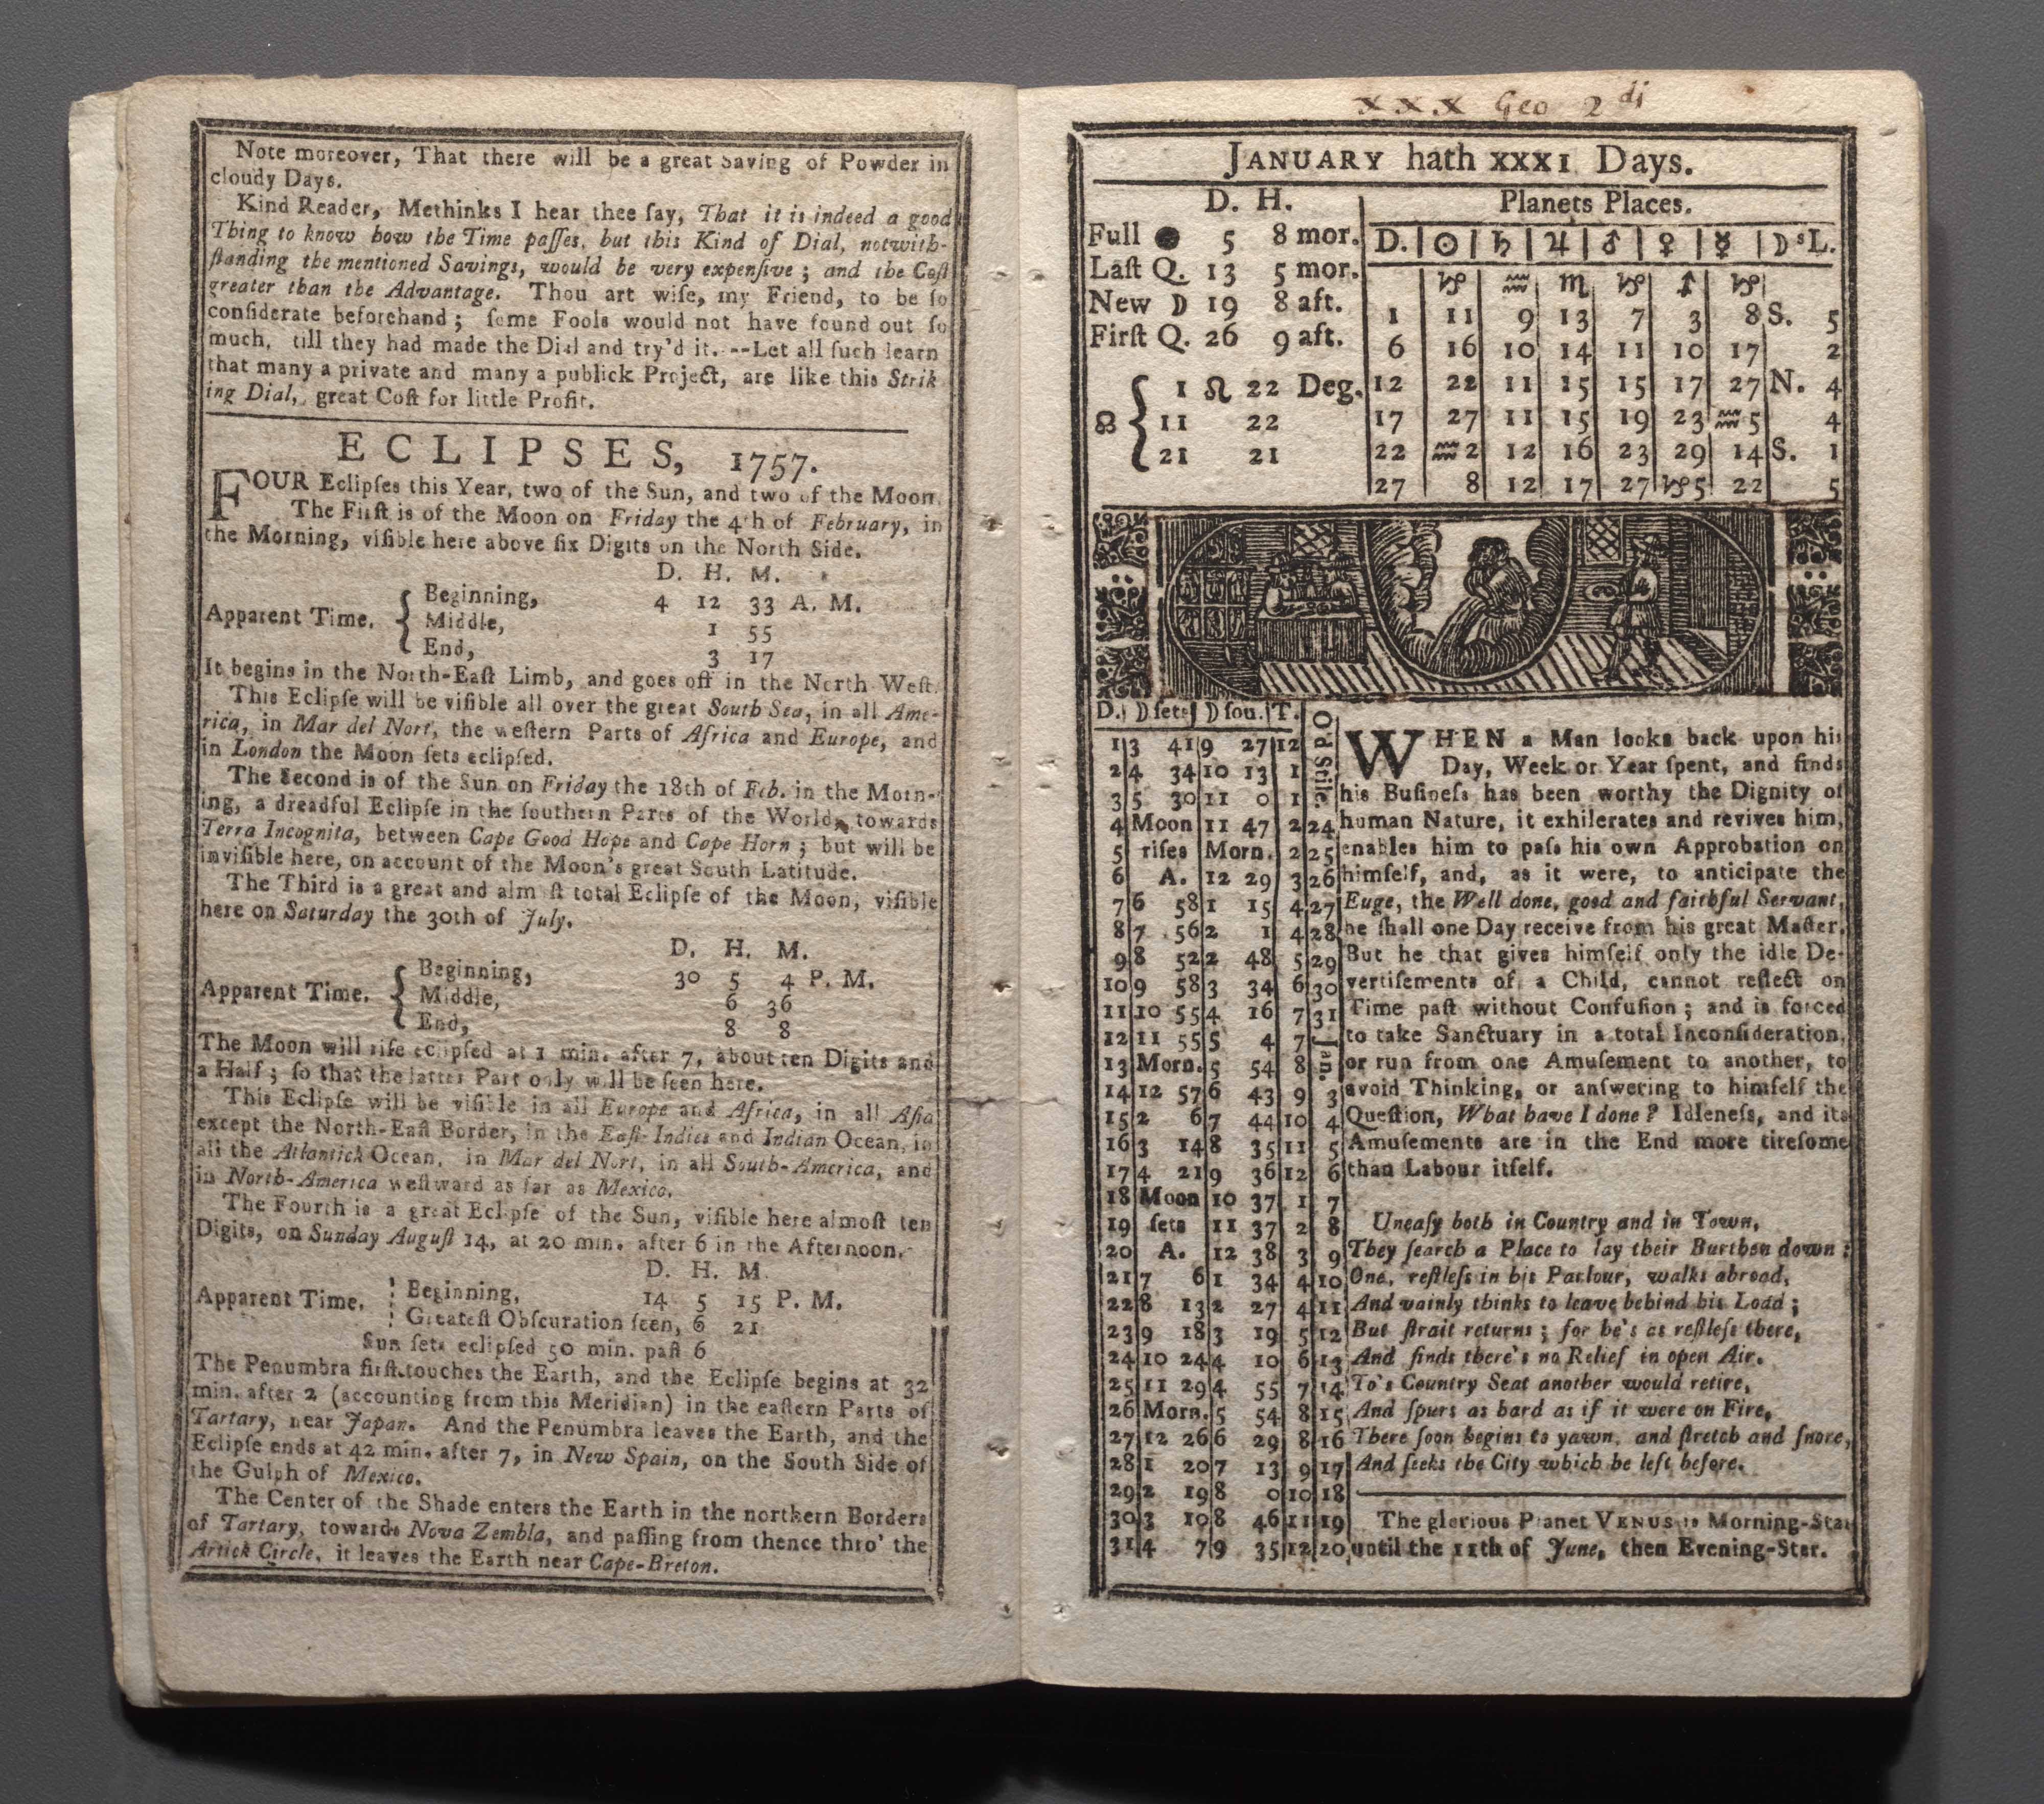 Note moreover, That there will be a great Saving of Powder in
cloudy Days.
Kind Reader, Methinks I hear thee ſay, That it is indeed a good
Thing to know how the Time paſſes, but this Kind of Dial, notwith-
ſtanding the mentioned Savings, would be very expenſive; and the Coſt
greater than the Advantage. Thou art wiſe, my Friend, to be ſo
conſiderate beforehand; ſome Fools would not have found out ſo
much, till they had made the Dial and try'd it. --Let all ſuch learn
that many a private and many a publick Project, are like this Strik
ing Dial, great Coſt for little Profit.
ECLIPSES, 1757.
FOUR Eclipſes this Year, two of the Sun, and two of the Moon.
The Firſt is of the Moon on Friday the 4th of February, in
the Morning, viſible here above ſix Digits on the North Side.
D. H. M.
Beginning, 4 12 33 A. M.
Apparent Time. { Middle, 1 55
End, 3 17
It begins in the North-Eaſt Limb, and goes off in the North Weſt.
This Eclipſe will be viſible all over the great South Sea, in all Ame-
rica, in Mar del Nort, the weſtern Parts of Africa and Europe, and
in London the Moon ſets eclipſed.
The Second is of the Sun on Friday the 18th of Feb. in the Morn-
ing, a dreadful Eclipſe in the ſouthern Parts of the World, towards
Terra Incognita, between Cape Good Hope and Cape Horn; but will be
inviſible here, on account of the Moon's great South Latitude.
The Third is a great and alm ſt total Eclipſe of the Moon, viſible
here on Saturday the 30th of July.
D. H. M.
Beginning, 30 5 4 P. M.
Apparent Time. { Middle, 6 36
End, 8 8
The Moon will riſe eclipſed at 1 min. after 7, about ten Digits and
a Half; ſo that the latter Part only will be ſeen here.
This Eclipſe will be viſible in all Europe and Africa, in all Aſia
except the North-Eaſt Border, in the Eaſt-Indies and Indian Ocean, in
all the Atlantick Ocean, in Mar del Nort, in all South-America, and
in North-America weſtward as far as Mexico.
The Fourth is a great Eclipſe of the Sun, viſible here almoſt ten
Digits, on Sunday Auguſt 14, at 20 min. after 6 in the Afternoon.
D. H. M.
Apparent Time. Beginning, 14 5 15 P. M.
Greateſt Obſcuration ſeen, 6 21
Sun ſets eclipſed 50 min. paſt 6
The Penumbra firſt touches the Earth, and the Eclipſe begins at 32
min. after 2 (accounting from this Meridian) in the eaſtern Parts of
Tartary, near Japan. And the Penumbra leaves the Earth, and the
Eclipſe ends at 42 min. after 7, in New Spain, on the South Side of
the Gulph of Mexico.
The Center of the Shade enters the Earth in the northern Borders
of Tartary, towards Nova Zembla, and paſſing from thence thro' the
Artick Circle, it leaves the Earth near Cape-Breton.
XXX Geo 2di
JANUARY hath XXXI Days.
D. H.
Full ● 5 8 mor.
Laſt Q. 13 5 mor.
New ☽ 19 8 aft.
Firſt Q. 26 9 aft.
1 ♌ 22 Deg.
☊ { 11 22
21 21
Planets Places.
D. ☉ ♄ ♃ ♂ ♀ ☿ ☽sL.
♑ ♒ ♏ ♑ ♐ ♑
1 11 9 13 7 3 8 S. 5
6 16 10 14 11 10 17 2
12 22 11 15 15 17 27 N. 4
17 27 11 15 19 23 ♒5 4
22 ♒2 12 16 23 29 14 S. 1
27 8 12 17 27 ♑5 22 5
D. ☽ ſets ☽ ſou. T. Old Stile.
1 3 41 9 27 12
2 4 34 10 13 1
3 5 30 11 0 1
4 Moon 11 47 2 24
5 riſes Morn. 2 25
6 A. 12 29 3 26
7 6 58 1 15 4 27
8 7 56 2 1 4 28
9 8 52 2 48 5 29
10 9 58 3 34 6 30
11 10 55 4 16 7 31
12 11 55 5 4 7 Jan.
13 Morn. 5 54 8
14 12 57 6 43 9 3
15 2 6 7 44 10 4
16 3 14 8 35 11 5
17 4 21 9 36 12 6
18 Moon 10 37 1 7
19 ſets 11 37 2 8
20 A. 12 38 3 9
21 7 6 1 34 4 10
22 8 13 2 27 4 11
23 9 18 3 19 5 12
24 10 24 4 10 6 13
25 11 29 4 55 7 14
26 Morn. 5 54 8 15
27 12 26 6 29 8 16
28 1 20 7 13 9 17
29 2 19 8 0 10 18
30 3 10 8 46 11 19
31 4 7 9 35 12 20
WHEN a Man looks back upon his
Day, Week or Year ſpent, and finds
his Buſineſs has been worthy the Dignity of
human Nature, it exhilerates and revives him,
enables him to paſs his own Approbation on
himſelf, and, as it were, to anticipate the
Euge, the Well done, good and faithful Servant,
he ſhall one Day receive from his great Maſter.
But he that gives himſelf only the idle De-
vertiſements of a Child, cannot reflect on
Time paſt without Confuſion; and is forced
to take Sanctuary in a total Inconſideration,
or run from one Amuſement to another, to
avoid Thinking, or anſwering to himſelf the
Queſtion, What have I done? Idleneſs, and its
Amuſements are in the End more tireſome
than Labour itſelf.
Uneaſy both in Country and in Town,
They ſearch a Place to lay their Burthen down:
One, reſtleſs in his Parlour, walks abroad,
And vainly thinks to leave behind his Load;
But ſtrait returns; for he's as reſtleſs there,
And finds there's no Relief in open Air.
To's Country Seat another would retire,
And ſpurs as hard as if it were on Fire,
There ſoon begins to yawn, and ſtretch and ſnore,
And ſeeks the City which he left before.
The glorious Planet VENUS is Morning-Star
until the 11th of June, then Evening-Star.